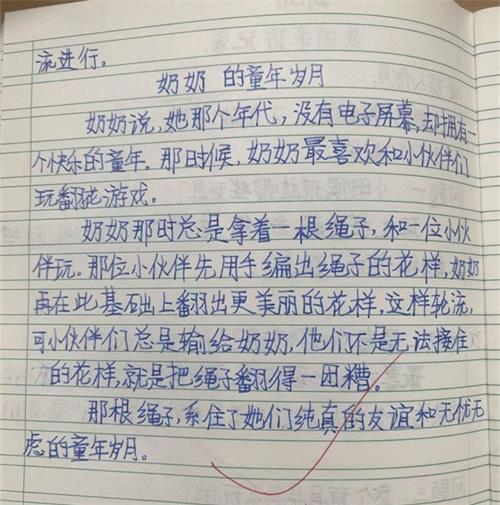 流进行。
奶奶的童年岁月
奶奶说,她那个年代,没有电子屏幕,却拥有
个快乐的童年。那时候,奶奶最喜欢和小伙伴们
玩翻花游戏。
奶奶那时总是拿着一根绳子,和一位小伙
伴玩。那位小伙伴先用手编出绳子的花样,奶奶
再在此基础上翻出更美丽的花样,这样轮流,
可小伙伴们总是输给奶奶,他们不是无法接住
的花样,就是把绳子翻得一团糟。
那根绳子,系住了她们纯真的友谊和无忧无
虑的童年岁月。